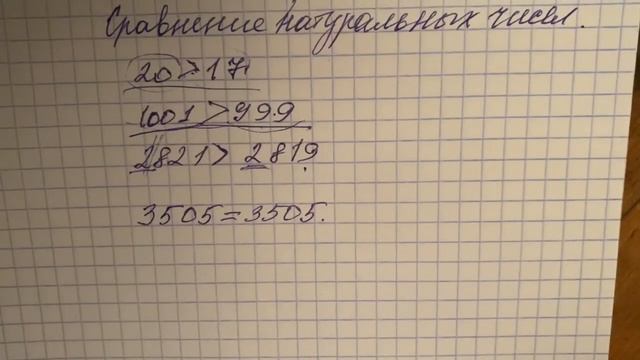 Сравнение натуральных чисел.
20 > 17
1001 > 999
2821 > 2819
3505 = 3505.